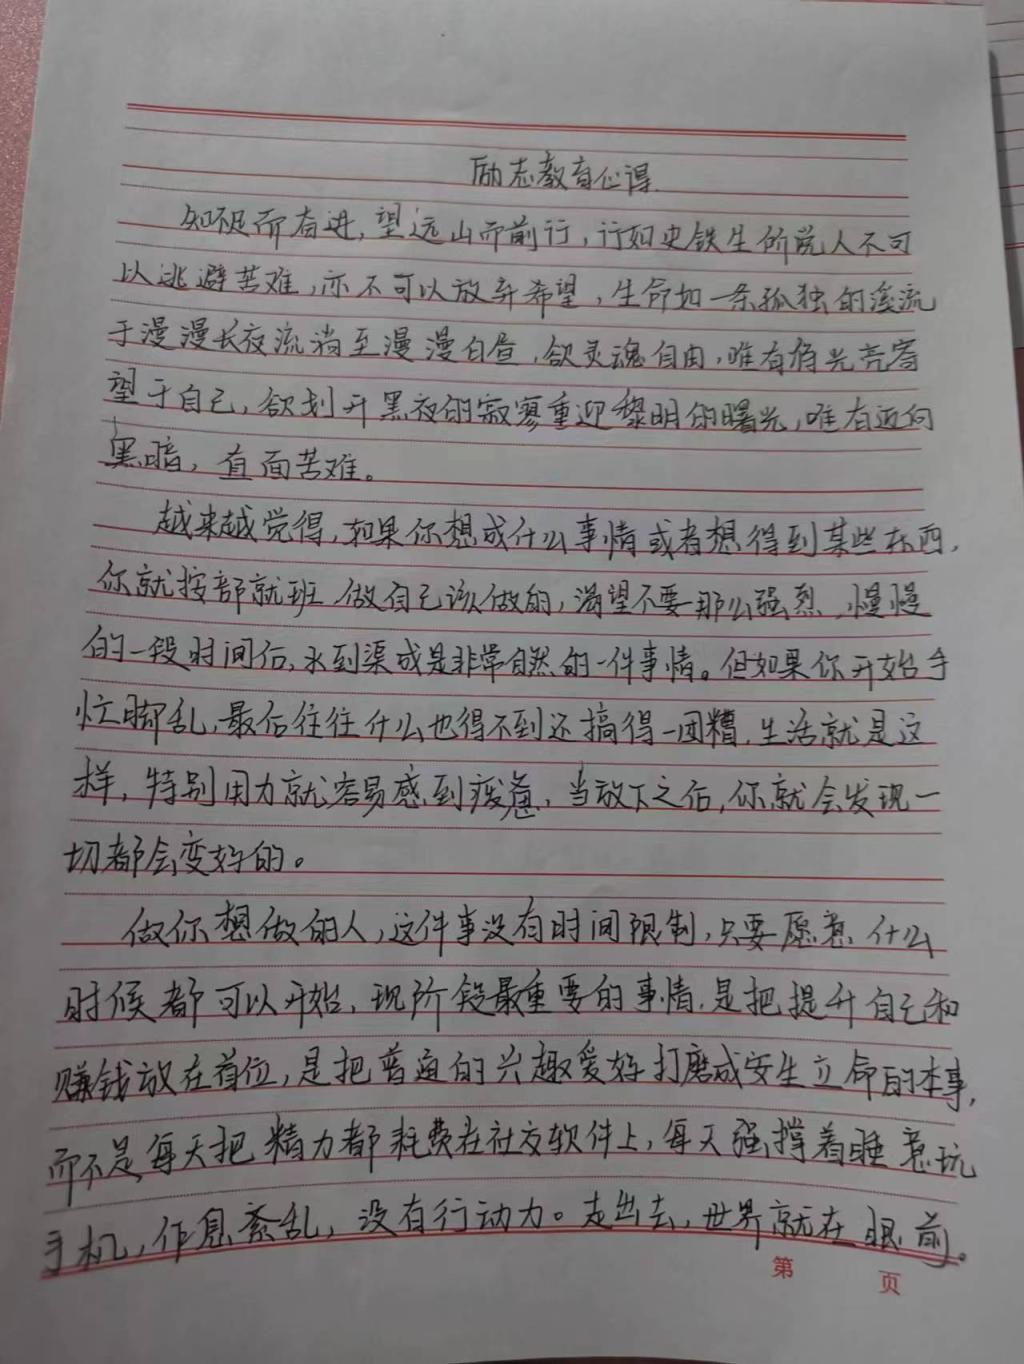 励志教育心得
知不足而奋进，望远山而前行，行如史铁生所说人不可
以逃避苦难，亦不可以放弃希望，生命如一条孤独的溪流
于漫漫长夜流淌至漫漫白昼，欲灵魂自由，唯有将光亮寄
望于自己，欲划开黑夜的寂寥重迎黎明的曙光，唯有迈向
黑暗，直面苦难。
越来越觉得，如果你想成什么事情或者想得到某些东西，
你就按部就班 做自己该做的，渴望不要那么强烈，慢慢
的一段时间后，水到渠成是非常自然的一件事情。但如果你开始手
忙脚乱，最后往往什么也得不到还搞得一团糟，生活就是这
样，特别用力就容易感到疲惫，当放下之后，你就会发现一
切都会变好的。
做你想做的人，这件事没有时间限制，只要愿意 什么
时候都可以开始，现阶段最重要的事情，是把提升自己和
赚钱放在首位，是把普通的兴趣爱好打磨成安生立命的本事，
而不是每天把精力都耗费在社交软件上，每天强撑着睡意玩
手机，作息紊乱，没有行动力。走出去，世界就在眼前。
第 页